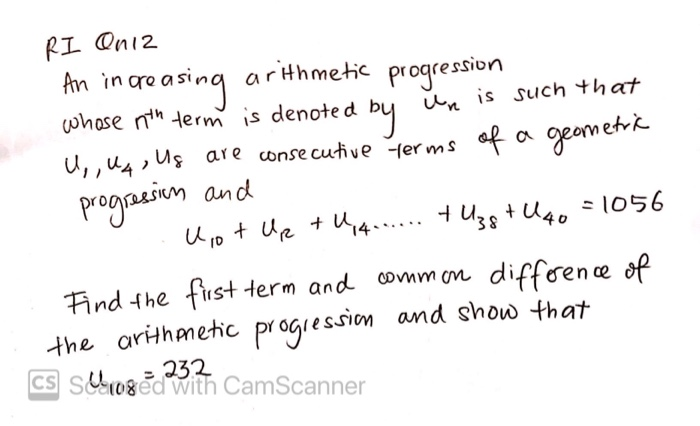 RI Qn12
An increasing arithmetic progression
whose nth term is denoted by un is such that
u1, u4, u8 are consecutive terms of a geometric
progression and
u10 + u12 + u14...... + u38 + u40 = 1056
Find the first term and common difference of
the arithmetic progression and show that
u108 = 232
CS Scanned with CamScanner